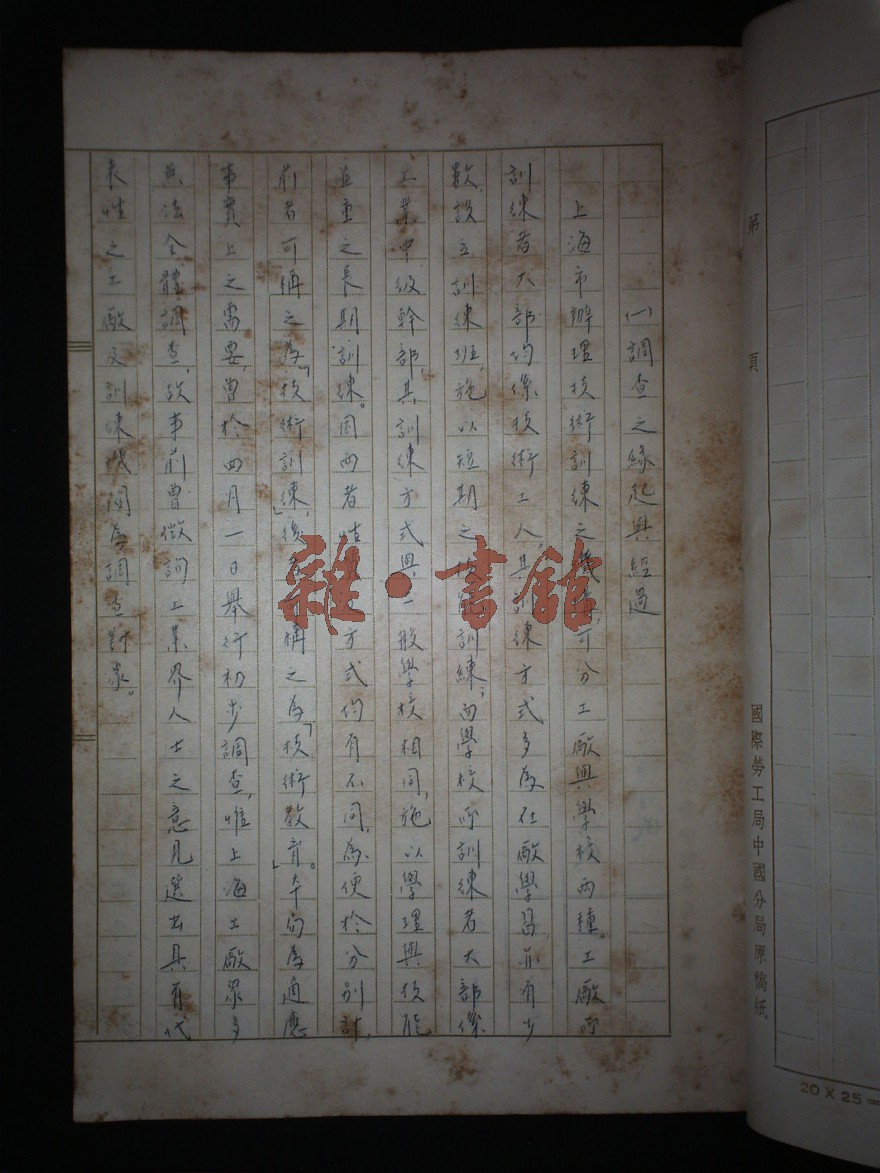 (一)調查之緣起與經過
上海市辦理技術訓練之機構,可分工廠與學校兩種。工廠所
訓練者大部均係技術工人,其訓練方式多為在廠學習,亦有少
數設立訓練班,施以短期之技能訓練;而學校所訓練者大部係
工業中級幹部,其訓練方式與一般學校相同,施以學理與技能
並重之長期訓練。因兩者性方式均有不同,為便於分別計,
前者可稱之為「技術訓練」,後者可稱之為「技術教育」。本局為適應
事實上之需要,曾於四月一日舉行初步調查,惟上海工廠眾多
無法全體調查,故事前曾徵詢工業界人士之意見選出具有代
表性之工廠及訓練機關為調查對象。
雜·書館
第 頁
國際勞工局中國分局原稿紙
20×25=